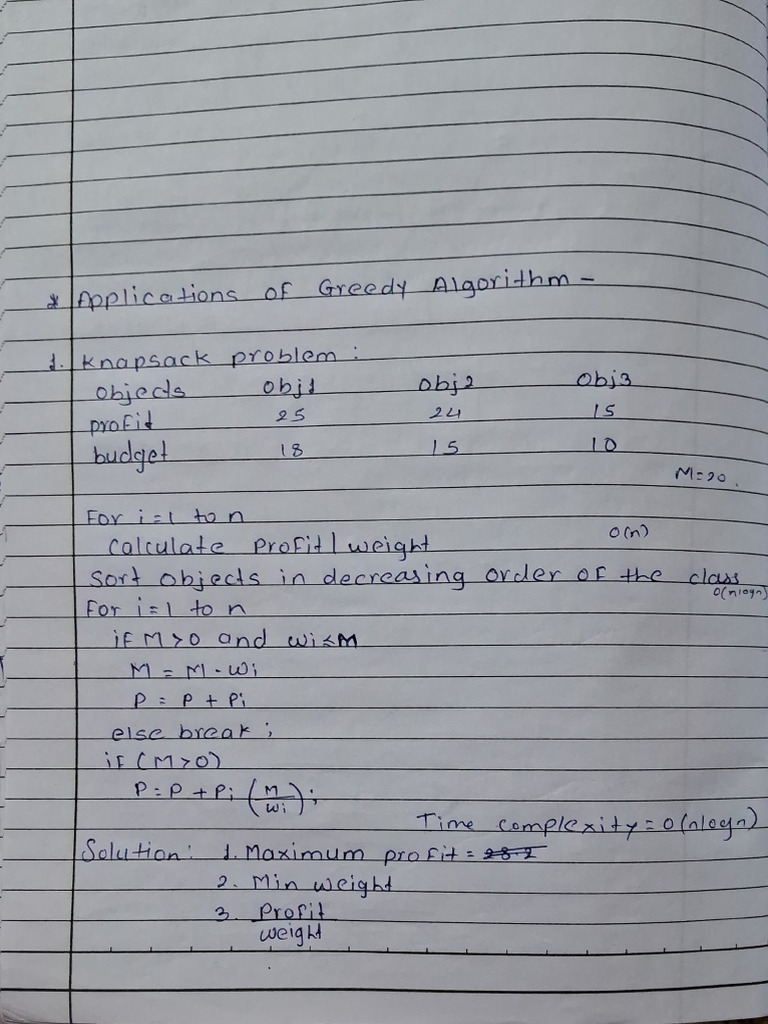 * Applications of Greedy Algorithm -
1. Knapsack problem :
objects obj1 obj2 obj3
profit 25 24 15
budget 18 15 10
M=20.
For i=1 to n
calculate profit/weight O(n)
Sort objects in decreasing order of the class
O(nlogn)
For i=1 to n
if M>0 and wi≤M
M = M - wi
P = P + Pi
else break;
if (M>0)
P=P+Pi (M/wi);
Time complexity = O(nlogn)
Solution: 1. Maximum profit = 28.2
2. Min weight
3. Profit
weight